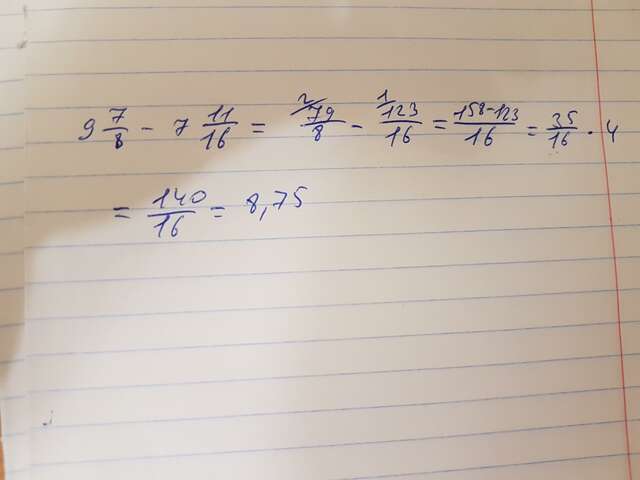 9 7/8 - 7 11/16 = 2/ 79/8 - 1/ 123/16 = 158-123/16 = 35/16 · 4
= 140/16 = 8,75